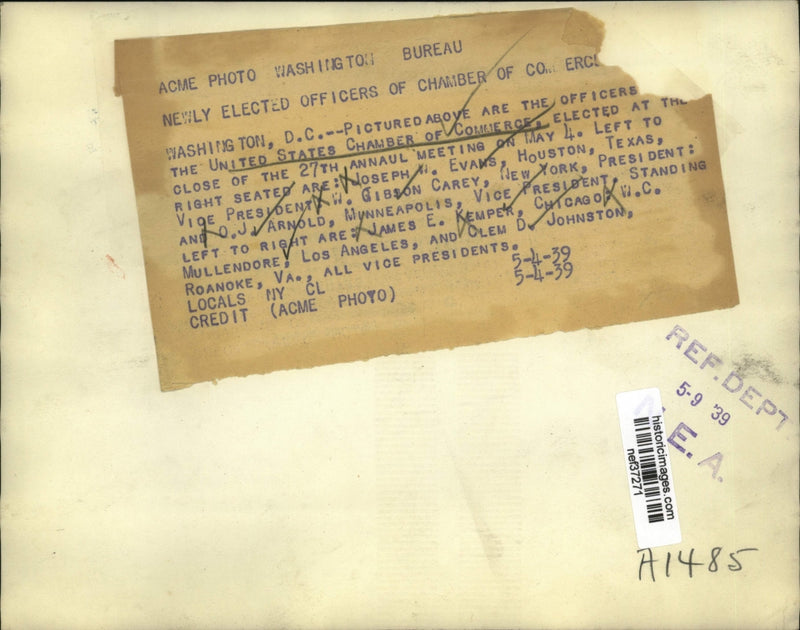 ACME PHOTO WASHINGTON BUREAU
NEWLY ELECTED OFFICERS OF CHAMBER OF COM ERC
WASHINGTON, D.C.--PICTURED ABOVE ARE THE OFFICERS
THE UNITED STATES CHAMBER OF COMMERCE, ELECTED AT THE
CLOSE OF THE 27TH ANNAUL MEETING ON MAY 4. LEFT TO
RIGHT SEATED ARE: JOSEPH W. EVANS, HOUSTON, TEXAS,
VICE PRESIDENT; W. GIBSON CAREY, NEW YORK, PRESIDENT:
AND O.J. ARNOLD, MUNNEAPOLIS, VICE PRESIDENT. STANDING
LEFT TO RIGHT ARE: JAMES E. KEMPER, CHICAGO; W.C.
MULLENDORE, LOS ANGELES, AND CLEM D. JOHNSTON,
ROANOKE, VA., ALL VICE PRESIDENTS.
LOCALS NY CL 5-4-39
CREDIT (ACME PHOTO) 5-4-39
REF. DEPT
5-9 '39
N. E. A.
historicimages.com
nef37271
A1485